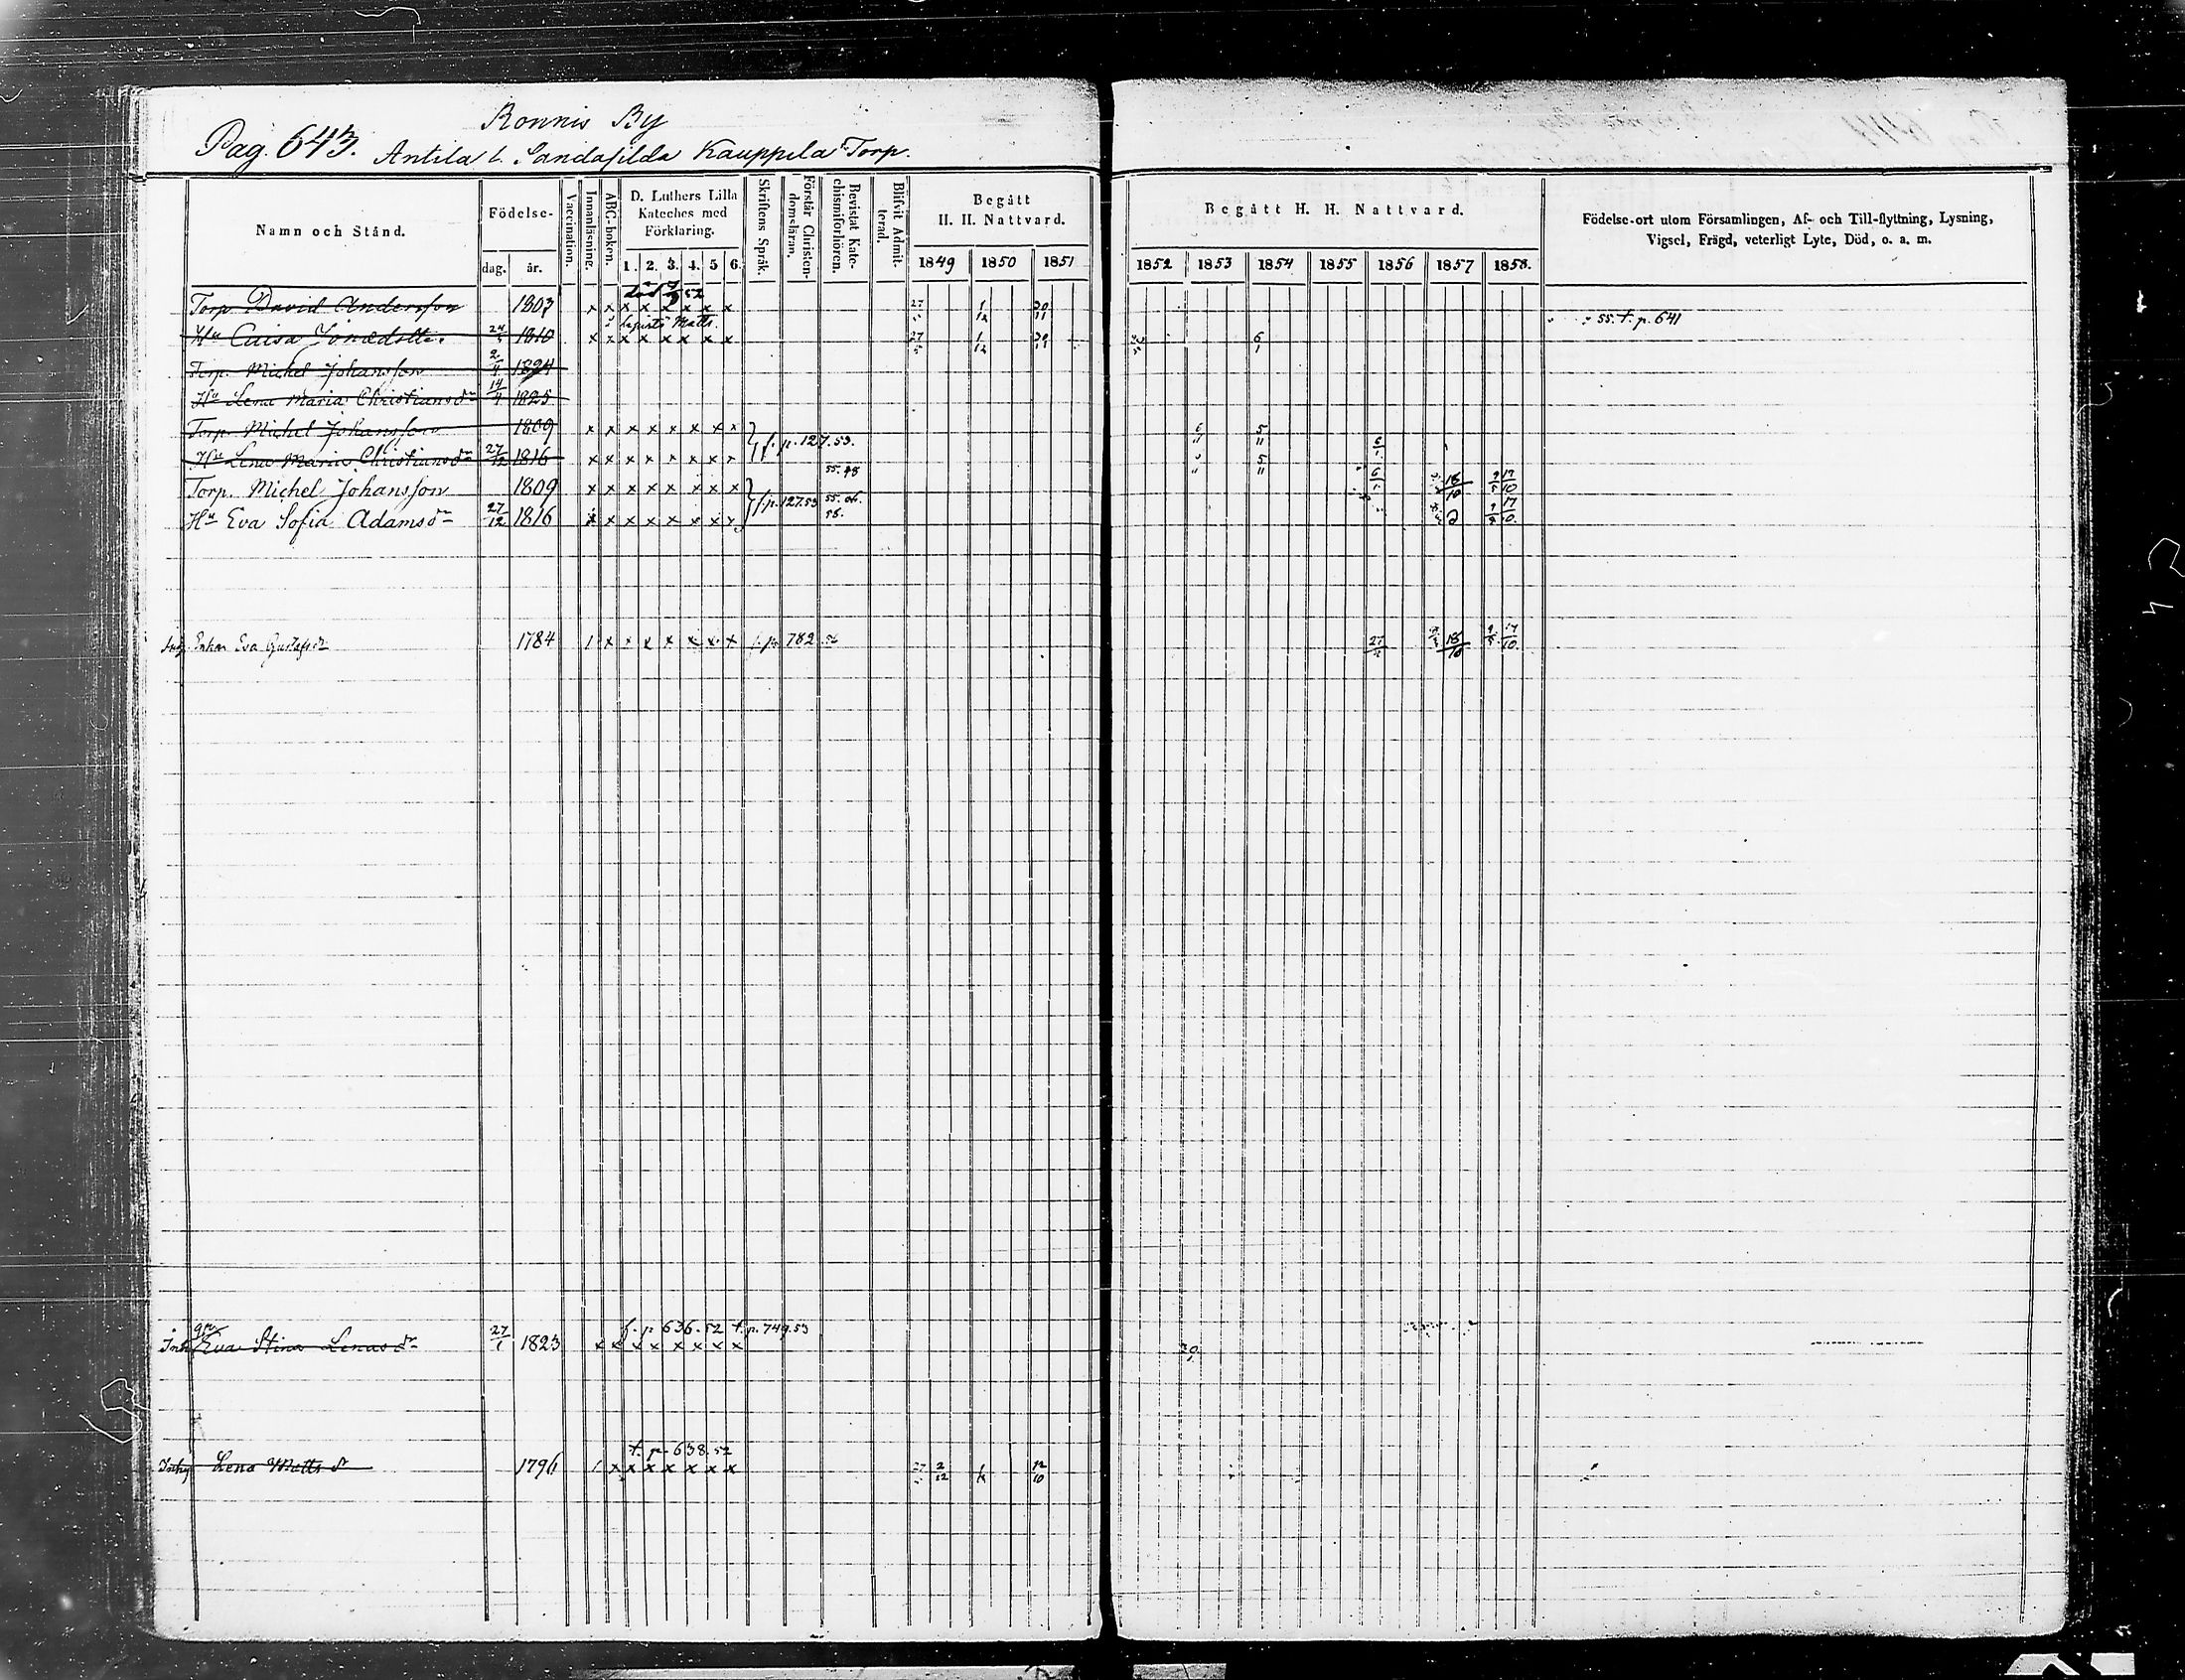 Ronnis By
Pag. 643. Antila l. Kauppila Torp.
Namn och Stånd.
Födelse-
dag. år.
Vaccination.
Innanläsning.
ABC-boken.
D. Luthers Lilla
Kateches med
Förklaring.
1. 2. 3. 4. 5 6.
Skriftens Språk.
Förstår Christen-
domsläran.
Bevistat Kate-
chismiförhören.
Blifvit Admit-
terad.
Begått
H. H. Nattvard.
1849 1850 1851
Begått H. H. Nattvard.
1852 1853 1854 1855 1856 1857 1858.
Födelse-ort utom Församlingen, Af- och Till-flyttning, Lysning,
Vigsel, Frägd, veterligt Lyte, Död, o. a. m.
död 52
Torp. David Andersson 1803 x x x x x x x x 27 1/12 30/11
55. t. p. 641
Hu Caisa 24 1810 x x x x x x x x 27/5 1/12 30/11 6/1
Torp. Michel Johansson 2/4 1824
Hu Lena Maria Christiansdr 14/4 1825
Torp. Michel Johansson 1809 x x x x x x x x f. p. 127. 53. 5/11
Hu Lena Maria Christiansdr 27/12 1816 x x x x x x x x 5/11 6
Torp. Michel Johansson 1809 x x x x x x x x f. p. 127. 53 18/10 17/10
Hu Eva Sofia Adamsdr 27/12 1816 x x x x x x x x
Enkan Eva Gustafsdr 1784 / x x x x x x x f. p. 782 27 18/10 17/10
f. p. 636. 52 t. p. 749. 53
Inh Eva Stina Lenasdr 27/1 1823 x x x x x x x x
t. p. 638. 52
Lena Mattsdr 1796 / x x x x x x x 27 2/12 12/10